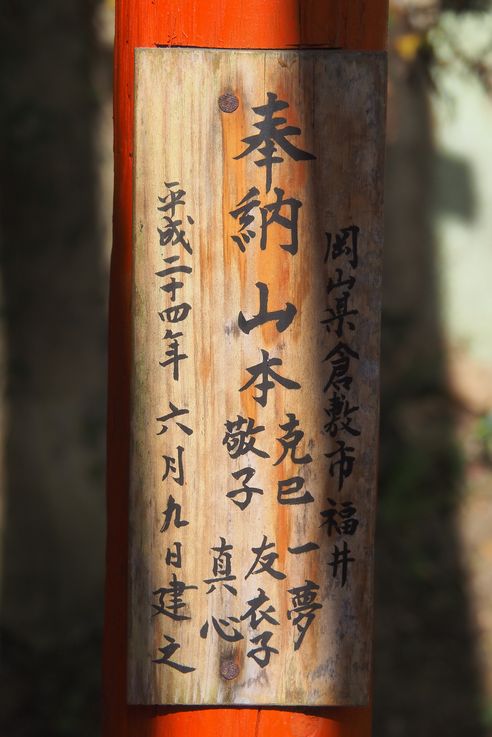 岡山県倉敷市福井
奉納 山本 克巳 一夢
敬子 友衣子
真心
平成二十四年 六月九日建之